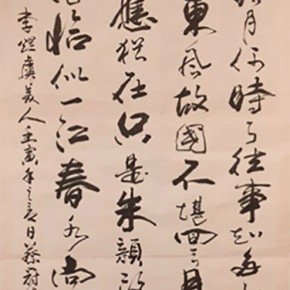 月何時了往事知多
東風故國不堪回首月
應猶在只是朱顏改
恰似一江春水向
李煜虞美人壬寅年之夏日蔡